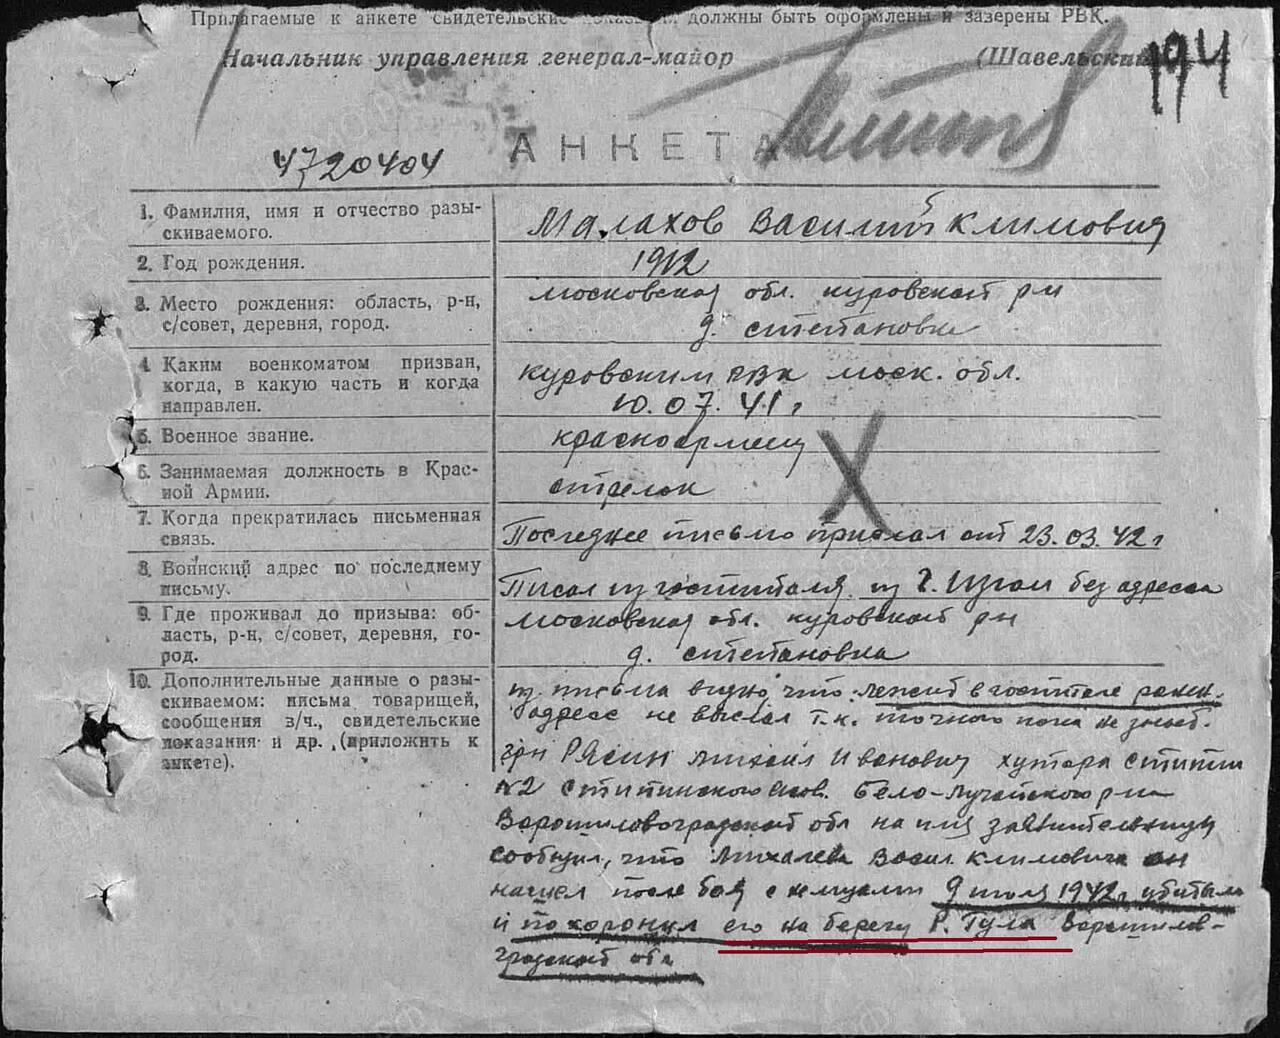 Прилагаемые к анкете свидетельские показания должны быть оформлены и заверены РВК.
Начальник управления генерал-майор (Шавельский)
194
АНКЕТА
4720404
1. Фамилия, имя и отчество разы-
скиваемого.
Малахов Василий Климович
2. Год рождения.
1912
3. Место рождения: область, р-н,
с/совет, деревня, город.
московская обл. куровской р-н
д. степановка
4. Каким военкоматом призван,
когда, в какую часть и когда
направлен.
куровским РВК моск. обл.
10.07.41 г
5. Военное звание.
красноармеец
6. Занимаемая должность в Крас-
ной Армии.
стрелок
7. Когда прекратилась письменная
связь.
Последнее письмо прислал от 23.03.42 г
8. Воинский адрес по последнему
письму.
Писал из госпиталя из г. Изюм без адреса
9. Где проживал до призыва: об-
ласть, р-н, с/совет, деревня, го-
род.
московская обл. куровской р-н
д. степановка
10. Дополнительные данные о разы-
скиваемом: письма товарищей,
сообщения в/ч., свидетельские
показания и др. (приложить к
анкете).
из письма видно, что лежит в госпитале ранен.
адрес не выслал т.к. точного пока не знает.
гр-н Рясин михаил Иванович хутора
№2 Бело-Луцкого р-на
Ворошиловоградской обл на имя заявительницы
сообщил, что Васил. климовича он
нашел после боя с немцами 9 июля 1942 г. убитым
и похоронил его на берегу р. Гула Ворошилов-
градской обл